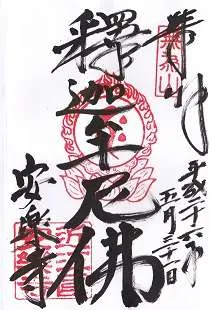 奉拝
平成二十六年
五月三十一日
釋迦牟尼佛
安楽寺